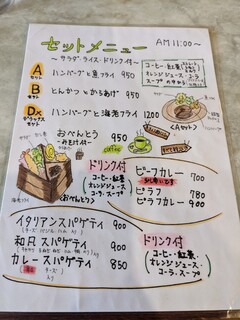 セットメニュー
AM 11:00〜
〜サラダ・ライス・ドリンク付〜
Aセット ハンバーグと魚フライ 950
Bセット とんかつ と からあげ 950
Dxデラックスセット ハンバーグと海老フライ 1200
コーヒー・紅茶
オレンジジュース・コーラ
おべんとう 950
〜みそ汁付〜
〈Aセット〉
ドリンク付
コーヒー・紅茶
オレンジジュース
コーラ・スープ
海老フライ
〈おべんとう〉
ビーフカレー 700
780
ピラフ 700
ピラフカレー 900
イタリアンスパゲティ 900
和風スパゲティ 900
カレースパゲティ 850
ドリンク付
コーヒー・紅茶
オレンジジュース
コーラ・スープ